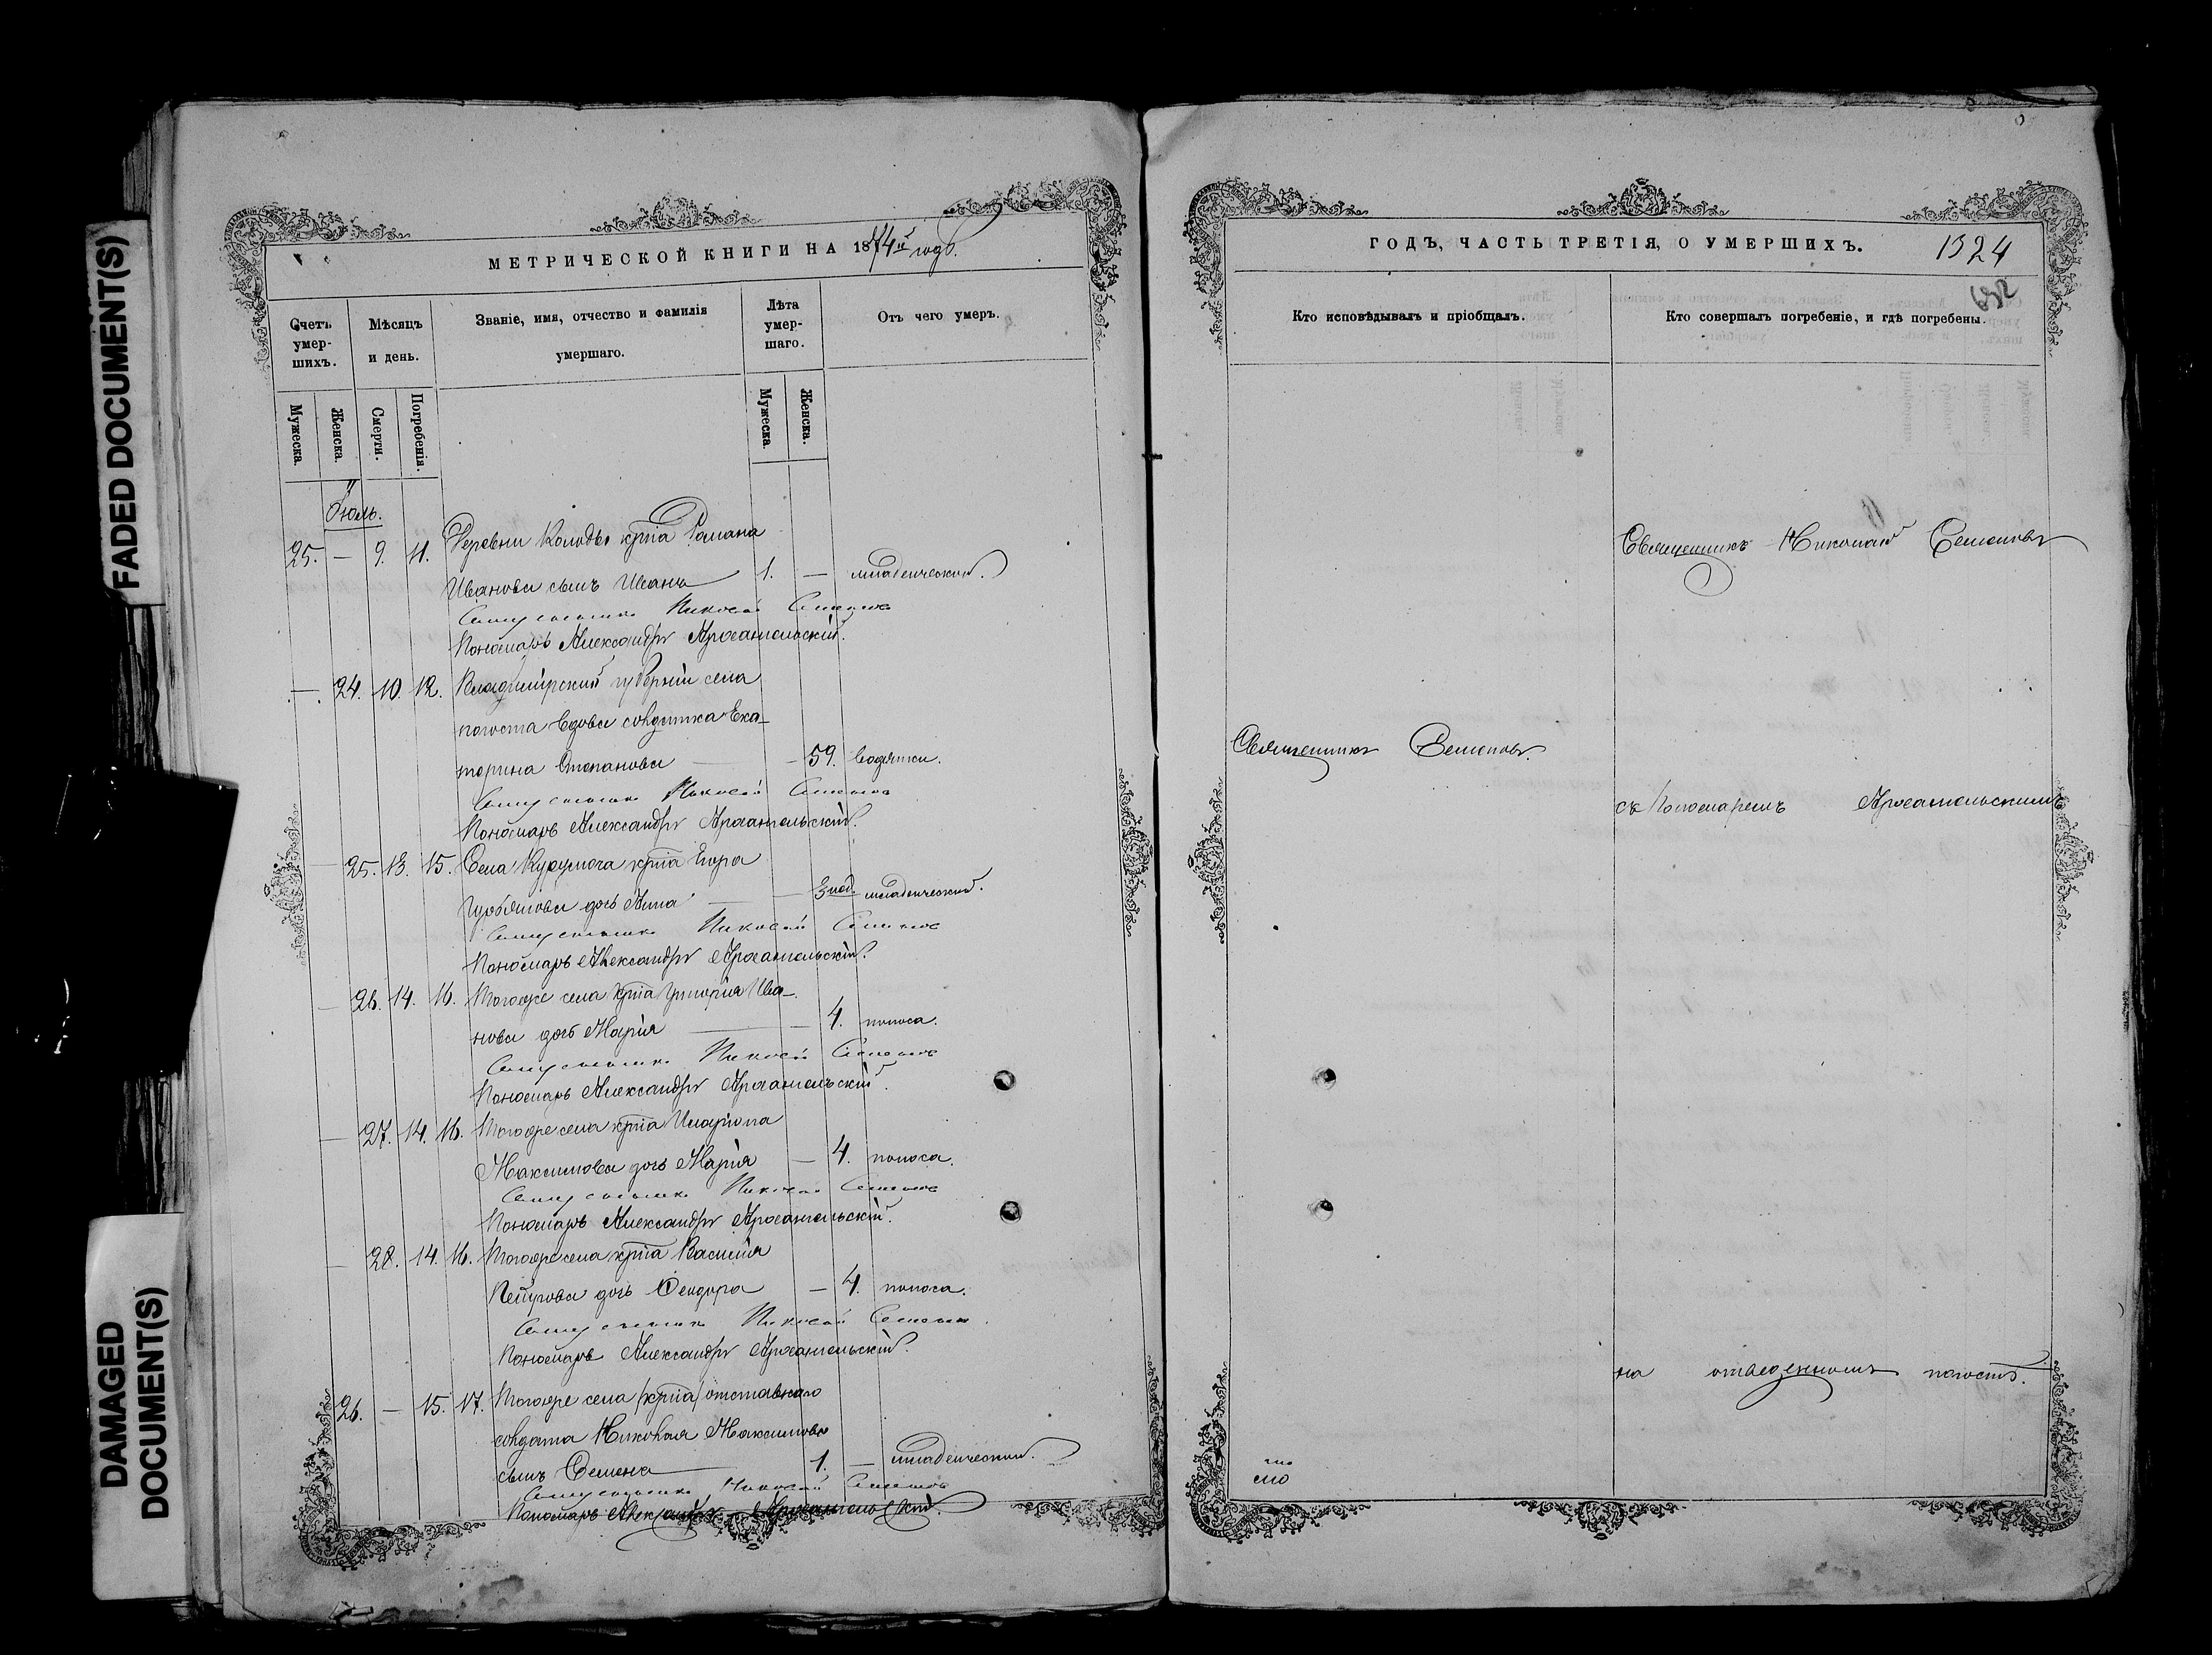 FADED DOCUMENT(S)
DAMAGED
DOCUMENT(S)
МЕТРИЧЕСКОЙ КНИГИ НА 1874й годъ.
Счетъ умер-шихъ.
Мѣсяцъ и день.
Званіе, имя, отчество и фамилія умершаго.
Лѣта умер-шаго.
Отъ чего умеръ.
Мужеска.
Женска.
Смерти.
Погребенія.
Мужеска.
Женска.
Іюль.
25. — 9. 11. Деревни крт̅а Романа
Иванова сынъ Иванъ 1. — младенческой.
Священникъ Николай Семеновъ
Пономарь Александръ Архангельскій.
— 24. 10. 12. Владимірской губерніи села
погоста вдова солдатка Ека-
терина Степанова — 59. водянки.
Священникъ Николай Семеновъ
Пономарь Александръ Архангельскій.
— 25. 13. 15. Села крт̅а Егора
дочь Анна — 3 нед. младенческой.
Священникъ Николай Семеновъ
Пономарь Александръ Архангельскій.
— 26. 14. 16. Тогоже села крт̅а Григорія Ива-
нова дочь Марія — 4. поноса.
Священникъ Николай Семеновъ
Пономарь Александръ Архангельскій.
— 27. 14. 16. Тогоже села крт̅а Иларіона
Максимова дочь Марія — 4. поноса.
Священникъ Николай Семеновъ
Пономарь Александръ Архангельскій.
— 28. 14. 16. Тогоже села крт̅а Василія
Петрова дочь Ѳеодора — 4. поноса.
Священникъ Николай Семеновъ
Пономарь Александръ Архангельскій.
26. — 15. 17. Тогоже села (крт̅а) отставнаго
солдата Николая Максимова
сынъ Семенъ 1. — младенческой.
Священникъ Николай Семеновъ
Пономарь Александръ Архангельскій.
ГОДЪ, ЧАСТЬ ТРЕТІЯ, О УМЕРШИХЪ. 1324
692
Кто исповѣдывалъ и пріобщалъ.
Кто совершалъ погребеніе, и гдѣ погребены.
Священникъ Николай Семеновъ
Священникъ Семеновъ.
съ Пономаремъ Архангельскимъ
на отведенномъ погостѣ.